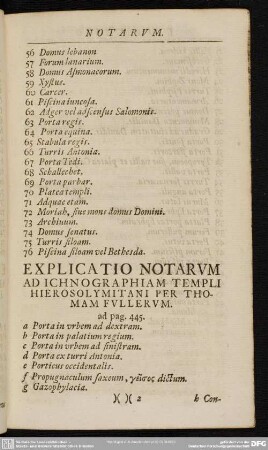 NOTARVM.
56 Domus lebanon
57 Forum lanarium.
58 Domus Asmonaeorum.
59 Xystus.
60 Carcer.
61 Piscina iuncosa.
62 Agger vel adscensus Salomonis.
63 Porta regis.
64 Porta equina.
65 Stabula regis.
66 Turris Antonia.
67 Porta Tedi.
68 Schallechet.
69 Porta parbar.
70 Platea templi.
71 Adquae etam.
72 Moriah, siue mons domus Domini.
73 Archiuum.
74 Domus senatus.
75 Turris siloam.
76 Piscina siloam vel Bethesda.
EXPLICATIO NOTARVM
AD ICHNOGRAPHIAM TEMPLI
HIEROSOLYMITANI PER THO-
MAM FVLLERVM.
ad pag. 445.
a Porta in vrbem ad dextram.
b Porta in palatium regium.
c Porta in vrbem ad sinistram.
d Porta ex turri Antonia.
e Porticus occidentalis.
f Propugnaculum saxeum, dictum.
g Gazophylacia.
)( )( 2
h Con-
DFG